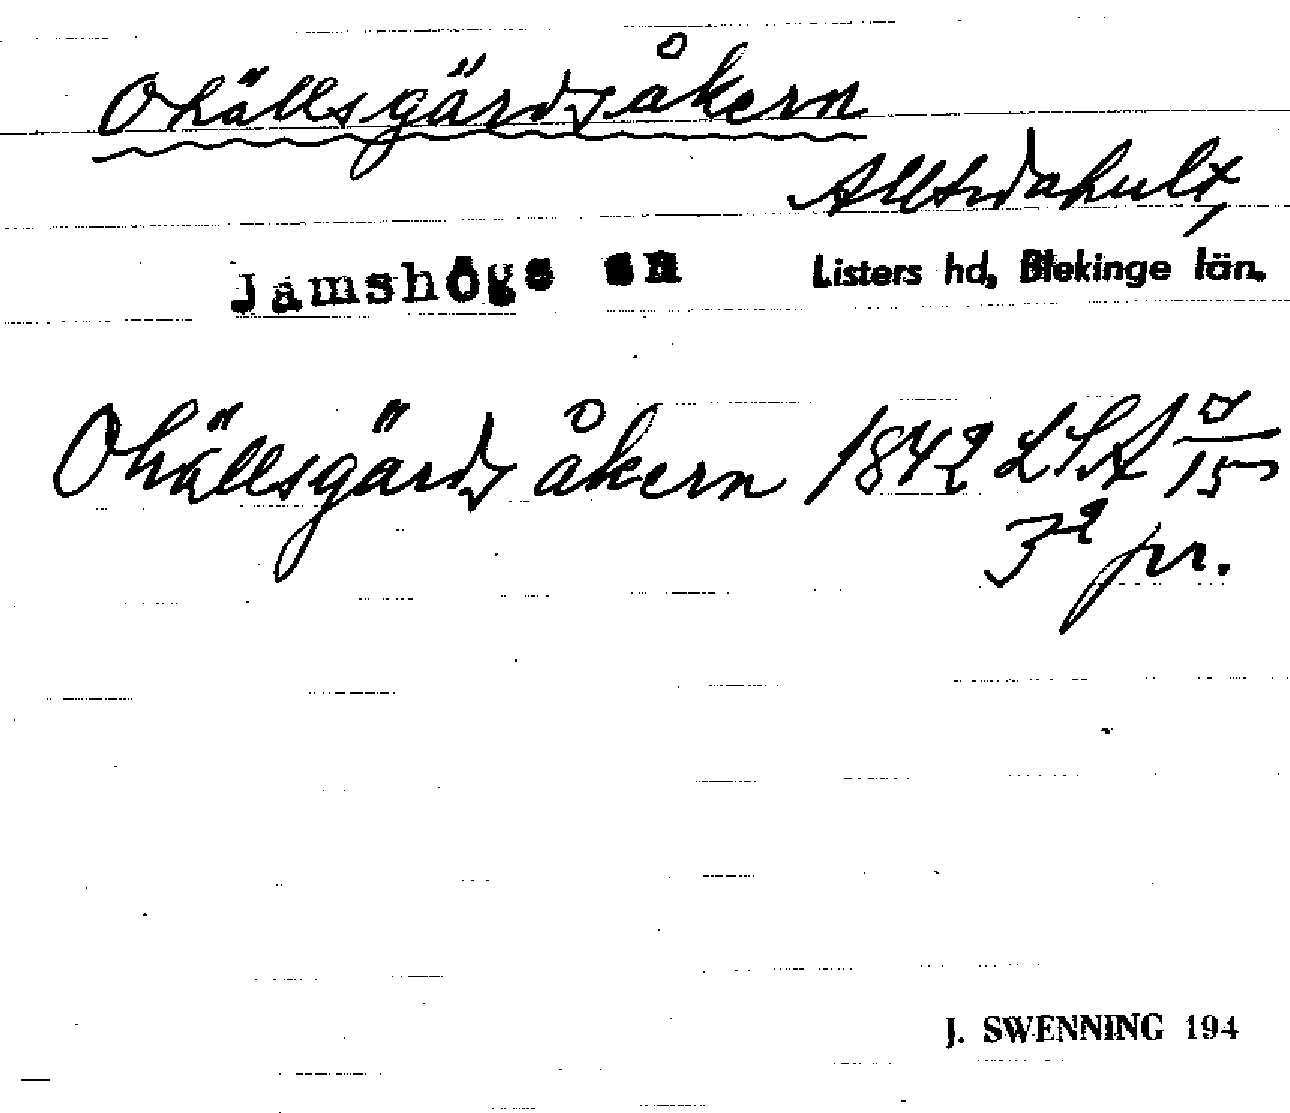 Ohällsgärdsåkern
Alltidahult,
Jämshögs sn Listers hd, Blekinge län.
Ohällsgärds åkern 1842 LSA
15
pr.
J. SWENNING 194